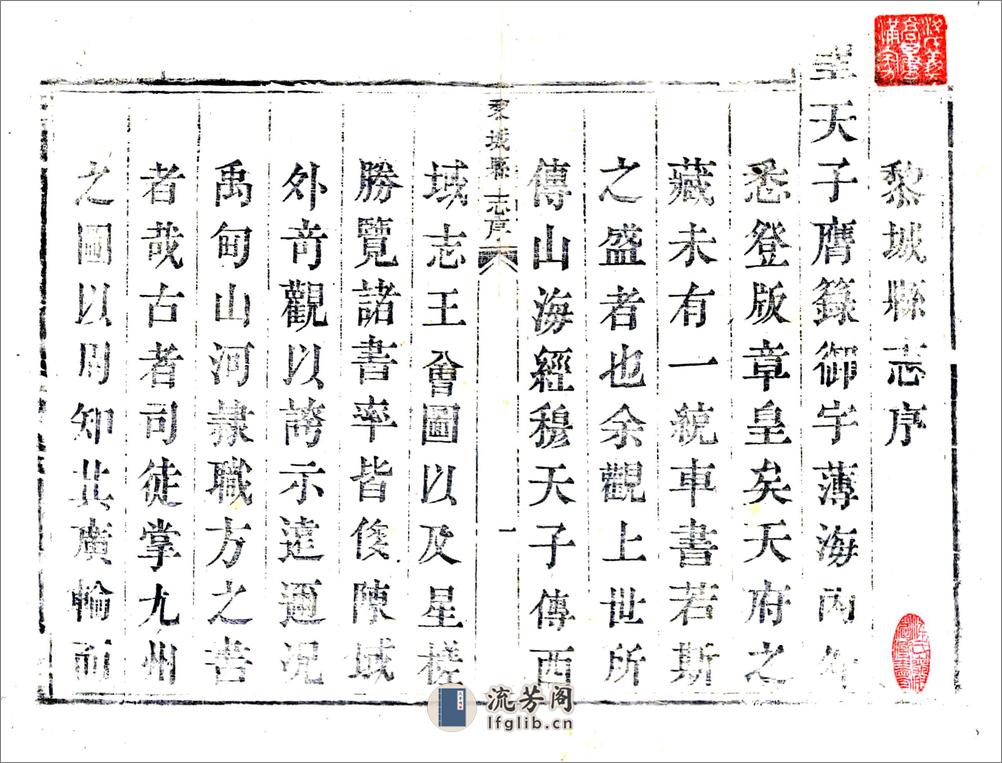 黎城縣志序
聖天子膺籙御宇薄海內外
悉登版章皇矣天府之
藏未有一統車書若斯
之盛者也余觀上世所
傳山海經穆天子傳西
黎城縣志序
一
域志王會圖以及星槎
勝覽諸書率皆侈陳域
外奇觀以誇示遠邇況
禹甸山河隷職方之書
者哉古者司徒掌九州
之圖以周知其廣輪而
流芳阁
lfglib.cn